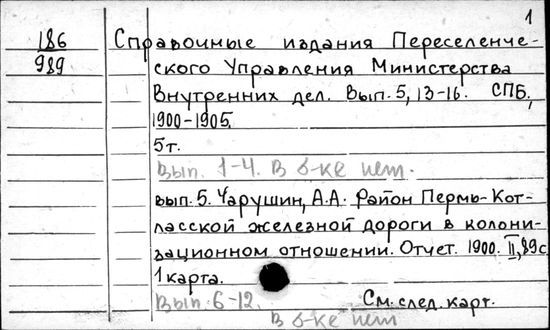 1
186 Справочные издания Переселенче-
989 ского Управления Министерства
Внутренних дел. Вып. 5, 13-16. СПБ,
1900-1905.
5 т.
Вып. 1-4. В б-ке нет.
вып. 5. Чарушин, А.А. Район Пермь-Кот-
ласской железной дороги в колони-
зационном отношении. Отчет. 1900. II, 89 с.
1 карта.
Вып. 6-12. См. след. карт.
В б-ке нет